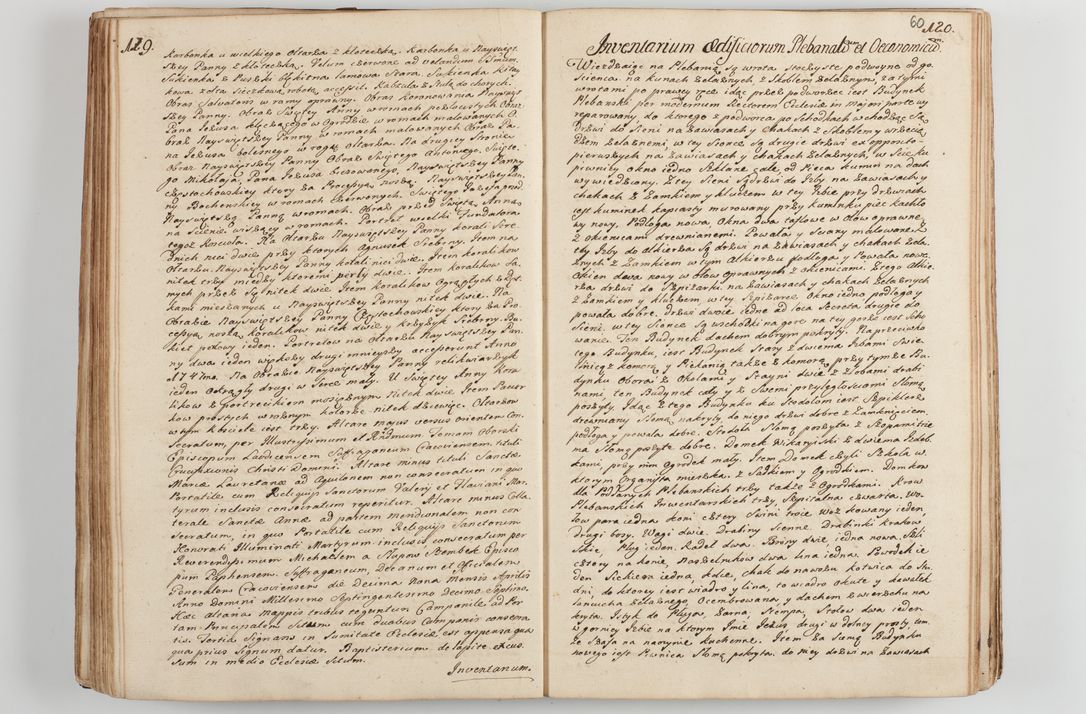 119.
Karbonka u wielkiego ołtarza z kłoteczką. Karbonka u Nayswięt
szey Panny z kłoteczką. Velum czerwone ad velandum SSmum.
Sukienka z Puszki błękitna lamowa stara. Sukienka kitay
kowa żołta siczkową robotą accessit. Kabzula z Stułą do chorych.
Obraz Salvatoris w ramy oprawny. Obraz Koronowania Nayswięt
szey Panny. Obraz Swięty Anny w romach
Pana Jezusa klęczącego w Ogroycie w romach malowanych O
braz Nayswiętszey Panny w romach malowanych Obraz Pa
na Jezusa bolesnego w rogu ołtarza. Na drugiey stronie
Obraz Nayswiętszey Panny Obraz Swiętego Antoniego, Swięte
go Mikołaja, Pana Jezusa biczowanego, Nayswiętszey Panny
Częstochowskiey ktory za Processyą noszą. Nayswiętszey Pan
ny Bochenskiey w romach czerwonych. Swiętego Jozefa pod
Nayswiętszą Panną w romach. Obraz przed Swiętą Anną
na scienie wiszący w romach. Portret wielki Fundatora
tegoż Kosciola. Na Ołtarzu Nayswiętszey Panny korali Sre
dnich nici dwie przy ktorych Agnusek Srebrny. Item na
Ołtarzu Nayswiętszey Panny korali nici dwie. Item koralikow
nitek trzy między ktoremi perły dwie. Item koralikow sa
mych przez się nitek dwie Item koralikow Ogrągłych z Pa
kami mieszanych u Nayswiętszey Panny nitek dwie. Na
Obrazie Nayswiętszey Panny Częstochowskiey ktory za Pro
cessyą noszą koralikow nitek dwie y krzyżyk Srebrny. Bu
kiet perłowy ieden. Portretow na Ołtarzu Nayswiętszey Pan
ny dwa ieden większy drugi mnieyszy accesserunt Anno
1747mo. Na Obrazie Nayswiętszey Panny relikwiarzyk
ieden Okrągły drugi w serce mały. U Swiętey Anny Kora
likow z postrzeikiem mosiążnym Nitek dwie Item Pacier
kow prostych w rożnym kolorze nitek dziewięć. Ołtarzow
w tym kosciele iest trzy. Altare majus versus orientem Con
secratum, per Illustrissimum et Rdmum Seniam Oborski
Episcopum Laodicensem Suffraganeum Cracoviensem tituli
Crucifixionis Christi Domini. Altare minus tituli Sanctæ
Mariæ Lauretanæ ad Aquilonem non consecratum in quo
Portatile cum Reliquijs Sanctorum Valerij et Flaviani Mar
tyrum inclusis consecratum reperitur. Altare minus Colla
terale Sanctæ Annæ ad partem meridionalem non con
secratum, in quo Portatile cum Reliquijs Sanctorum
Honorati Illuminati Martyrum inclusis consecratum per
Reverendissimum Michaelem a Słupow Szembek Episco
pum Paphensem Suffraganeum, Decanum et Officialem
Generalem Cracoviensem die Decima Nona Mensis Aprilis
Anno Domini Millesimo Septingentesimo Decimo Septimo.
Hæc altaria mappis tribus teguntur Campanile ad Por
tam Principalem Situm cum duabus Campanis consecra
tis. Tertia Signans in Sumitate Ecclesiæ est appensa qua
qua prius signum datur. Baptisterium de lapide excus
sum in medio Ecclesiæ situm.
Inventarium.
60
120.
Inventarium Ædificiorum Plebanaliu et Oeconomicor.
Wieżdżaiąc na Plebanią są wrota stoczyste podwoyne od go
scienca, na kunach żelaznych z skoblem żelaznym, za tymi
wrotami po prawey ręce idąc przez podworzec iest Budynek
Plebanski per modernum Rectorem Ecclesiæ in majori parte wy
reparowany, do ktorego z podworca po schodkach wchodząc Są
drzwi do Sieni na zawiasach y chakach z skoblem y wrzecią
dzem żelaznemi, w tey sionce są drugie drzwi ex opposito
pierwszych na zawiasach y chakach żelaznych, w
piwnicy okno iedno szklane całe, od Pieca kumin na dach
wywiedziony. Z tey Sieni są drzwi do Izby na zawiasach y
chakach z zamkiem y kluczem w tey Izbie przy drzwiach
iest kuminek kapiasty murowany przy kuminku piec kachlo
wy nowy, Podłoga nowa, Okna dwa taflowe w ołow oprawne
z okienicami drewnianemi. Powała y sciany malowane. Z
tey Izby do Alkierza są drzwi na zawiasach y chakach żela
znych z zamkiem w tym Alkierzu podłoga y powała nowa.
Okien dwa nowy w ołow oprawnych z okienicami. Z tego Alkie
rza drzwi do Szpiżarki na zawiasach y chakach żelaznych
z zamkiem y kluczem, w tey Szpiżarce Okno iedno podłoga y
powała dobre. Drzwi dwoie iedne ad loca secreta drugie do
Sieni, w tey sionce są wschodki na gorę na tey gorze iest scho
wanie. Ten Budynek dachem dobrym pokryty. Naprzeciwko
tego Budynku, iest Budynek stary z dwiema Izbami swie
tnicą z komorą y Piekarnią także z komorą przy tymże Bu
dynku Obora z Okołami y Stayni dwie z żłobami drabi
nami, ten Budynek cały y z swemi przyległosciami słomą
poszyty. Idąc z tego Budynku ku Stodołom iest Szpiklerz
drewniany słomą nakryty do niego drzwi dobre z zamknięciem
podłoga y powała dobre. Stodoła słomą poszyta z
ma słomą poszyte dobre. Domek Wikaryiski z dwiema Izdeb
kami, przy nim Ogrodek mały. Item Domek czyli Szkoła w
ktorym Organista mieszka, z sadkiem y Ogrodkiem. Domkow
dla poddanych Plebanskich trzy także z Ogrodkami. Krow
Plebanskich Inwentarskich trzy, Szpitalna czwarta. Wo
łow para iedna koni cztery Swini troie Woz kowany ieden,
drugi bosy. Wagi dwie. Drabiny Sienne. Drabinki krakow
skie, Pług ieden Radeł dwa. Brony dwie, iedna nowa. Szli
cztery na konie, Naszelnikow dwa Lina iedna. Powrożkie
den Siekiera iedna, kosie, chak do nawozu kotwica do Stu
dni, do ktorey iest wiadro y lina, to wiadro okute y kowałek
łancucha żelaznego. Ocembrowana y dachem z wierzchu na
kryta. Istyk do Pługow, Żarna, Stempa, Stołow dwa ieden
w gorney Izbie na ktorym Imie Jezus drugi w dolney prosty, tam
że Szafa na naczynie kuchenne. Item za samą Budynku
nowego iest Piwnica słomą pokryta, do niey drzwi na zawiasach